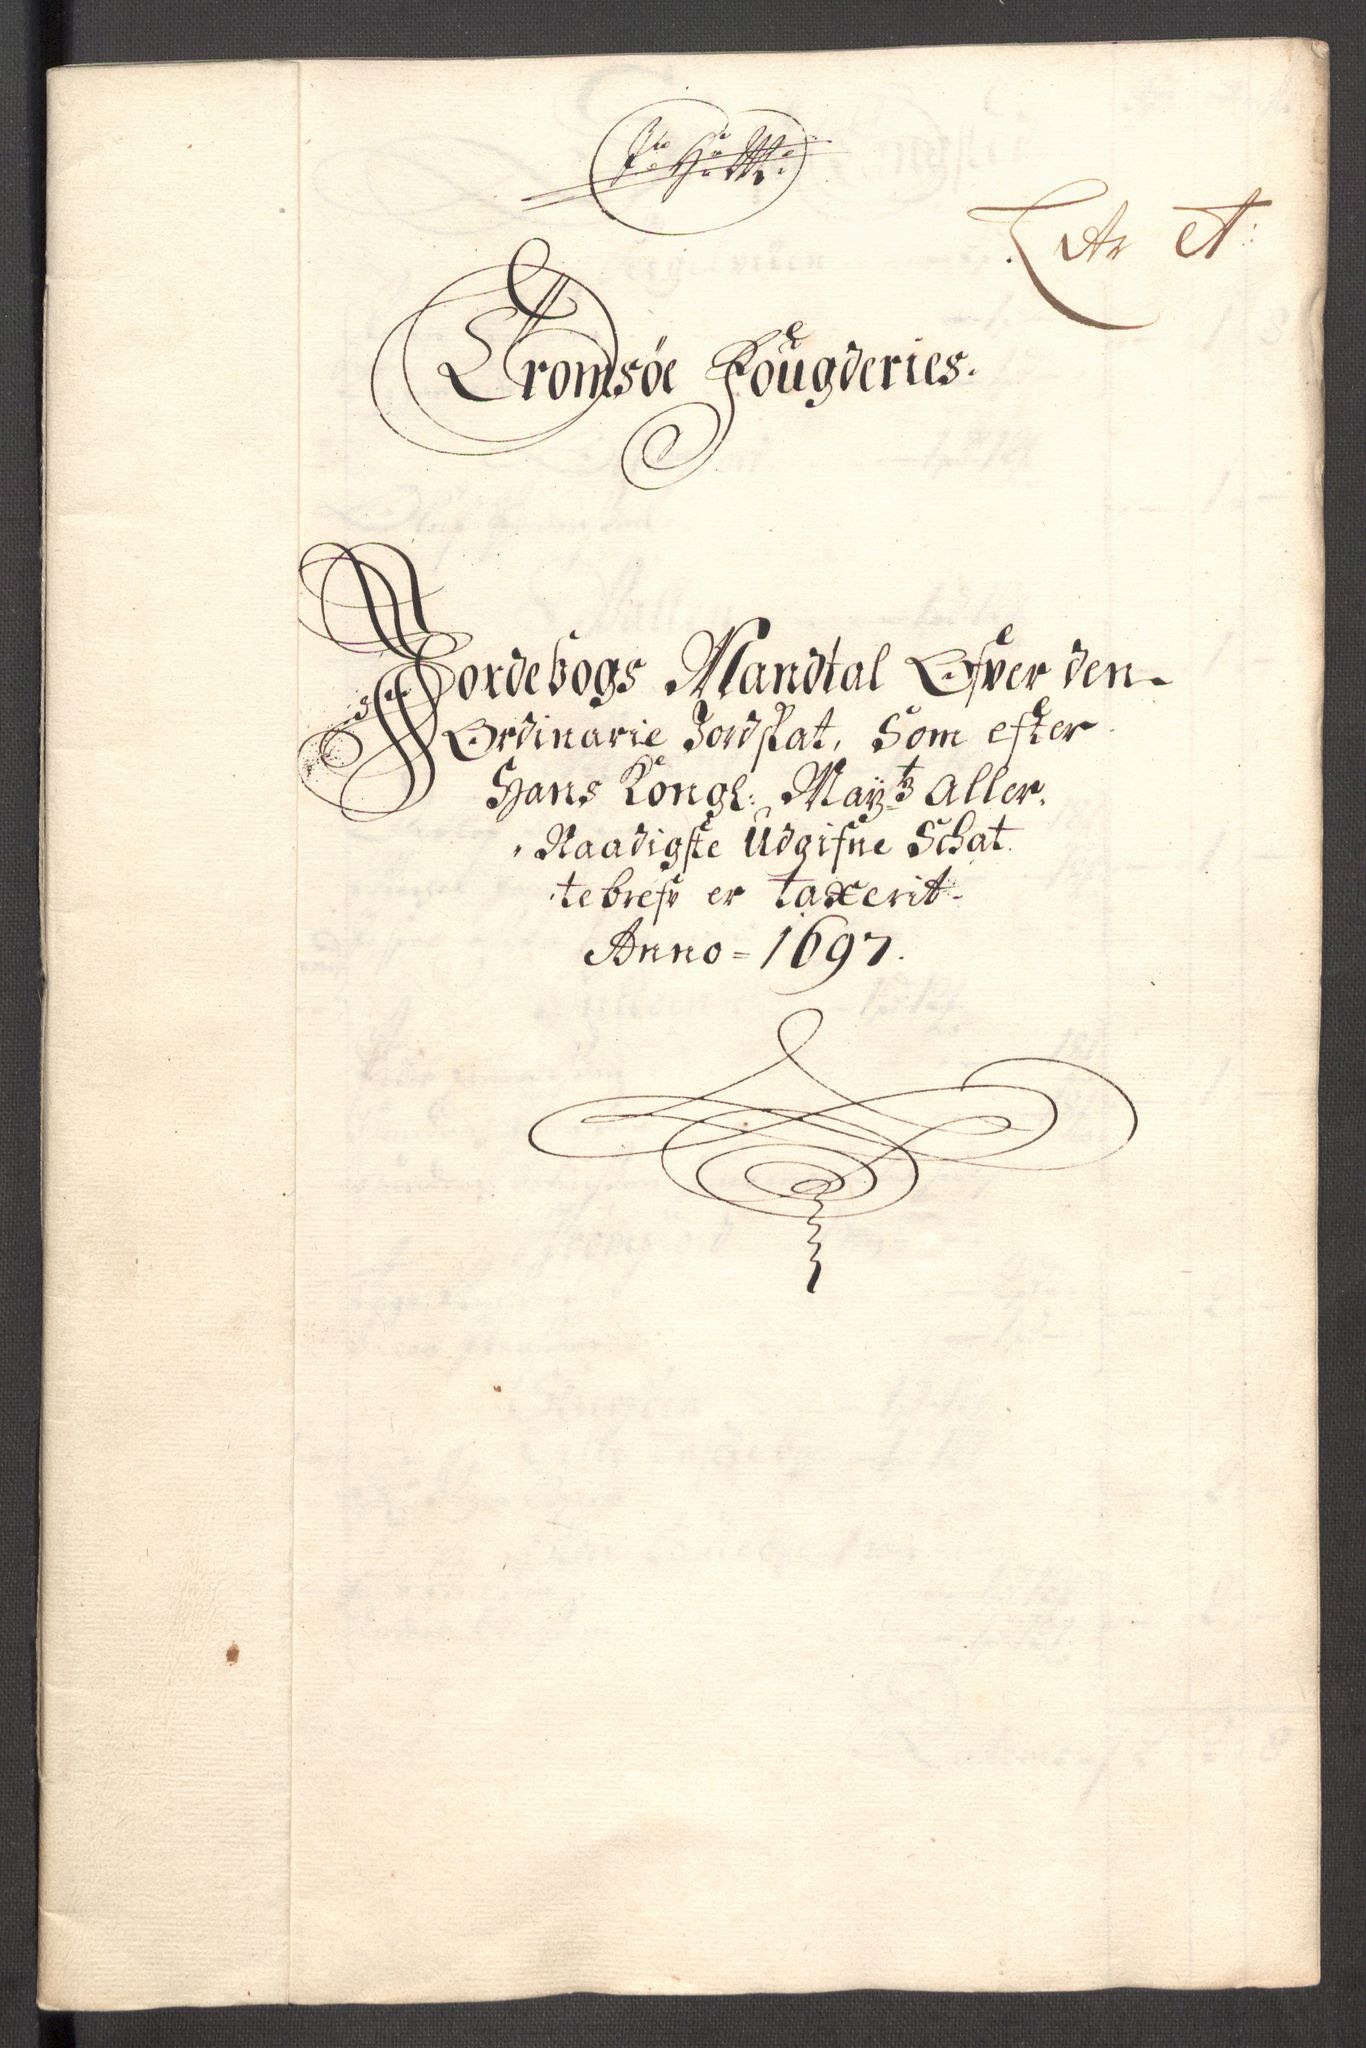 Litr A:
Tromsöe Fougderies.
Jordebogs Mandtal Ofver den
Ordinarie Jordskat, Som efter
Hans Kongl: Mayts Aller,
Naadigste Udgifne Schat
tebref er taxerit
Anno = 1697.